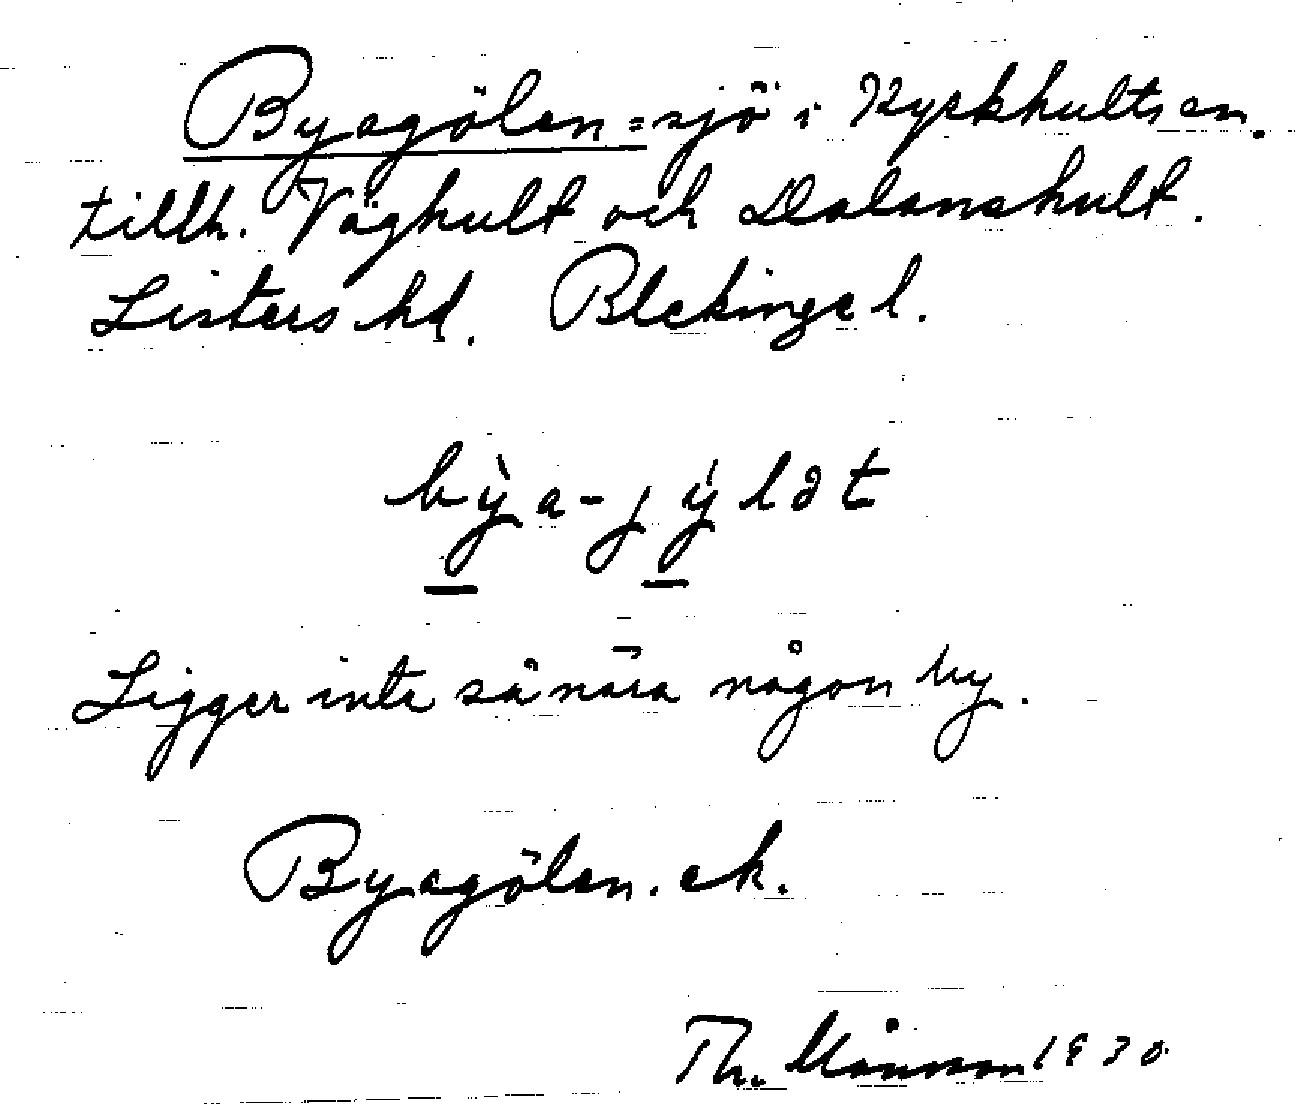 Byagölen = sjö i Kyrkhults sn.
tillh. Väghult och Dalanshult.
Listers hd. Blekinge l.
bỳa-jýlət
Ligger inte så nära någon by.
Byagölen. ek.
Th. Månsson 1930